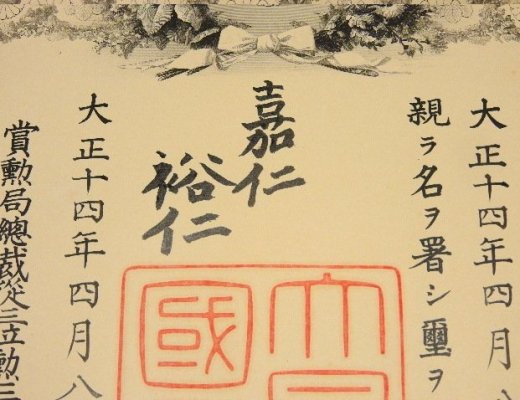 大正十四年四月八
親ラ名ヲ署シ璽ヲ
嘉仁
裕仁
大
國
大正十四年四月八
賞勲局總裁從三位勲三